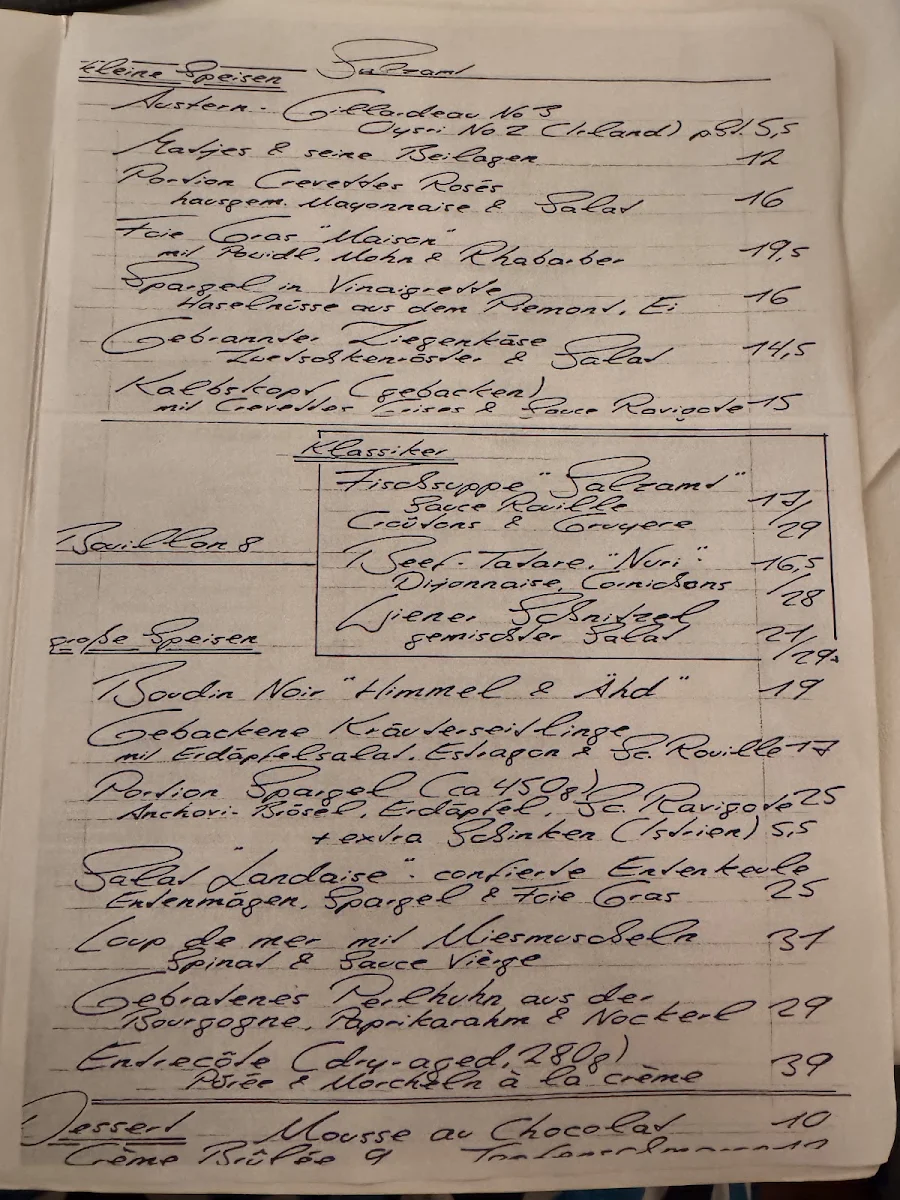 kleine Speisen Salzamt
Austern - Gillardeau No 3
Oysri No 2 (Irland) pSt. 5,5
Matjes & seine Beilagen 12
Portion Crevettes Rosés
hausgem. Mayonnaise & Salat 16
Foie Gras "Maison"
mit Powidl, Mohn & Rhabarber 19,5
Spargel in Vinaigrette
Haselnüsse aus dem Piemont, Ei 16
Gebrannter Ziegenkäse
Zwetschkenröster & Salat 14,5
Kalbskopf (gebacken)
mit Crevettes Grises & Sauce Ravigote 15
Klassiker
Fischsuppe "Salzamt"
Sauce Rouille 17/
Croûtons & Gruyere 29
Bouillon 8
Beef-Tatare, "Nuri" 16,5
Dijonnaise, Cornichons /28
Wiener Schnitzel
gemischter Salat 21/
/29,-
große Speisen
Boudin Noir "Himmel & Ähd" 19
Gebackene Kräuterseitlinge
mit Erdäpfelsalat, Estragon & Sc. Rouille 17
Portion Spargel (ca 450g) 25
Anchovi-Brösel, Erdäpfel, Sc. Ravigote
+ extra Schinken (Istrien) 5,5
Salat "Landaise" - confierte Entenkeule
Entenmägen, Spargel & Foie Gras 25
Loup de mer mit Miesmuscheln 31
Spinat & Sauce Vierge
Gebratenes Perlhuhn aus der
Bourgogne, Paprikarahm & Nockerl 29
Entrecôte (dry-aged, 280g) 39
Pürée & Morcheln à la crème
Dessert Mousse au Chocolat 10
Crème Brûlée 9